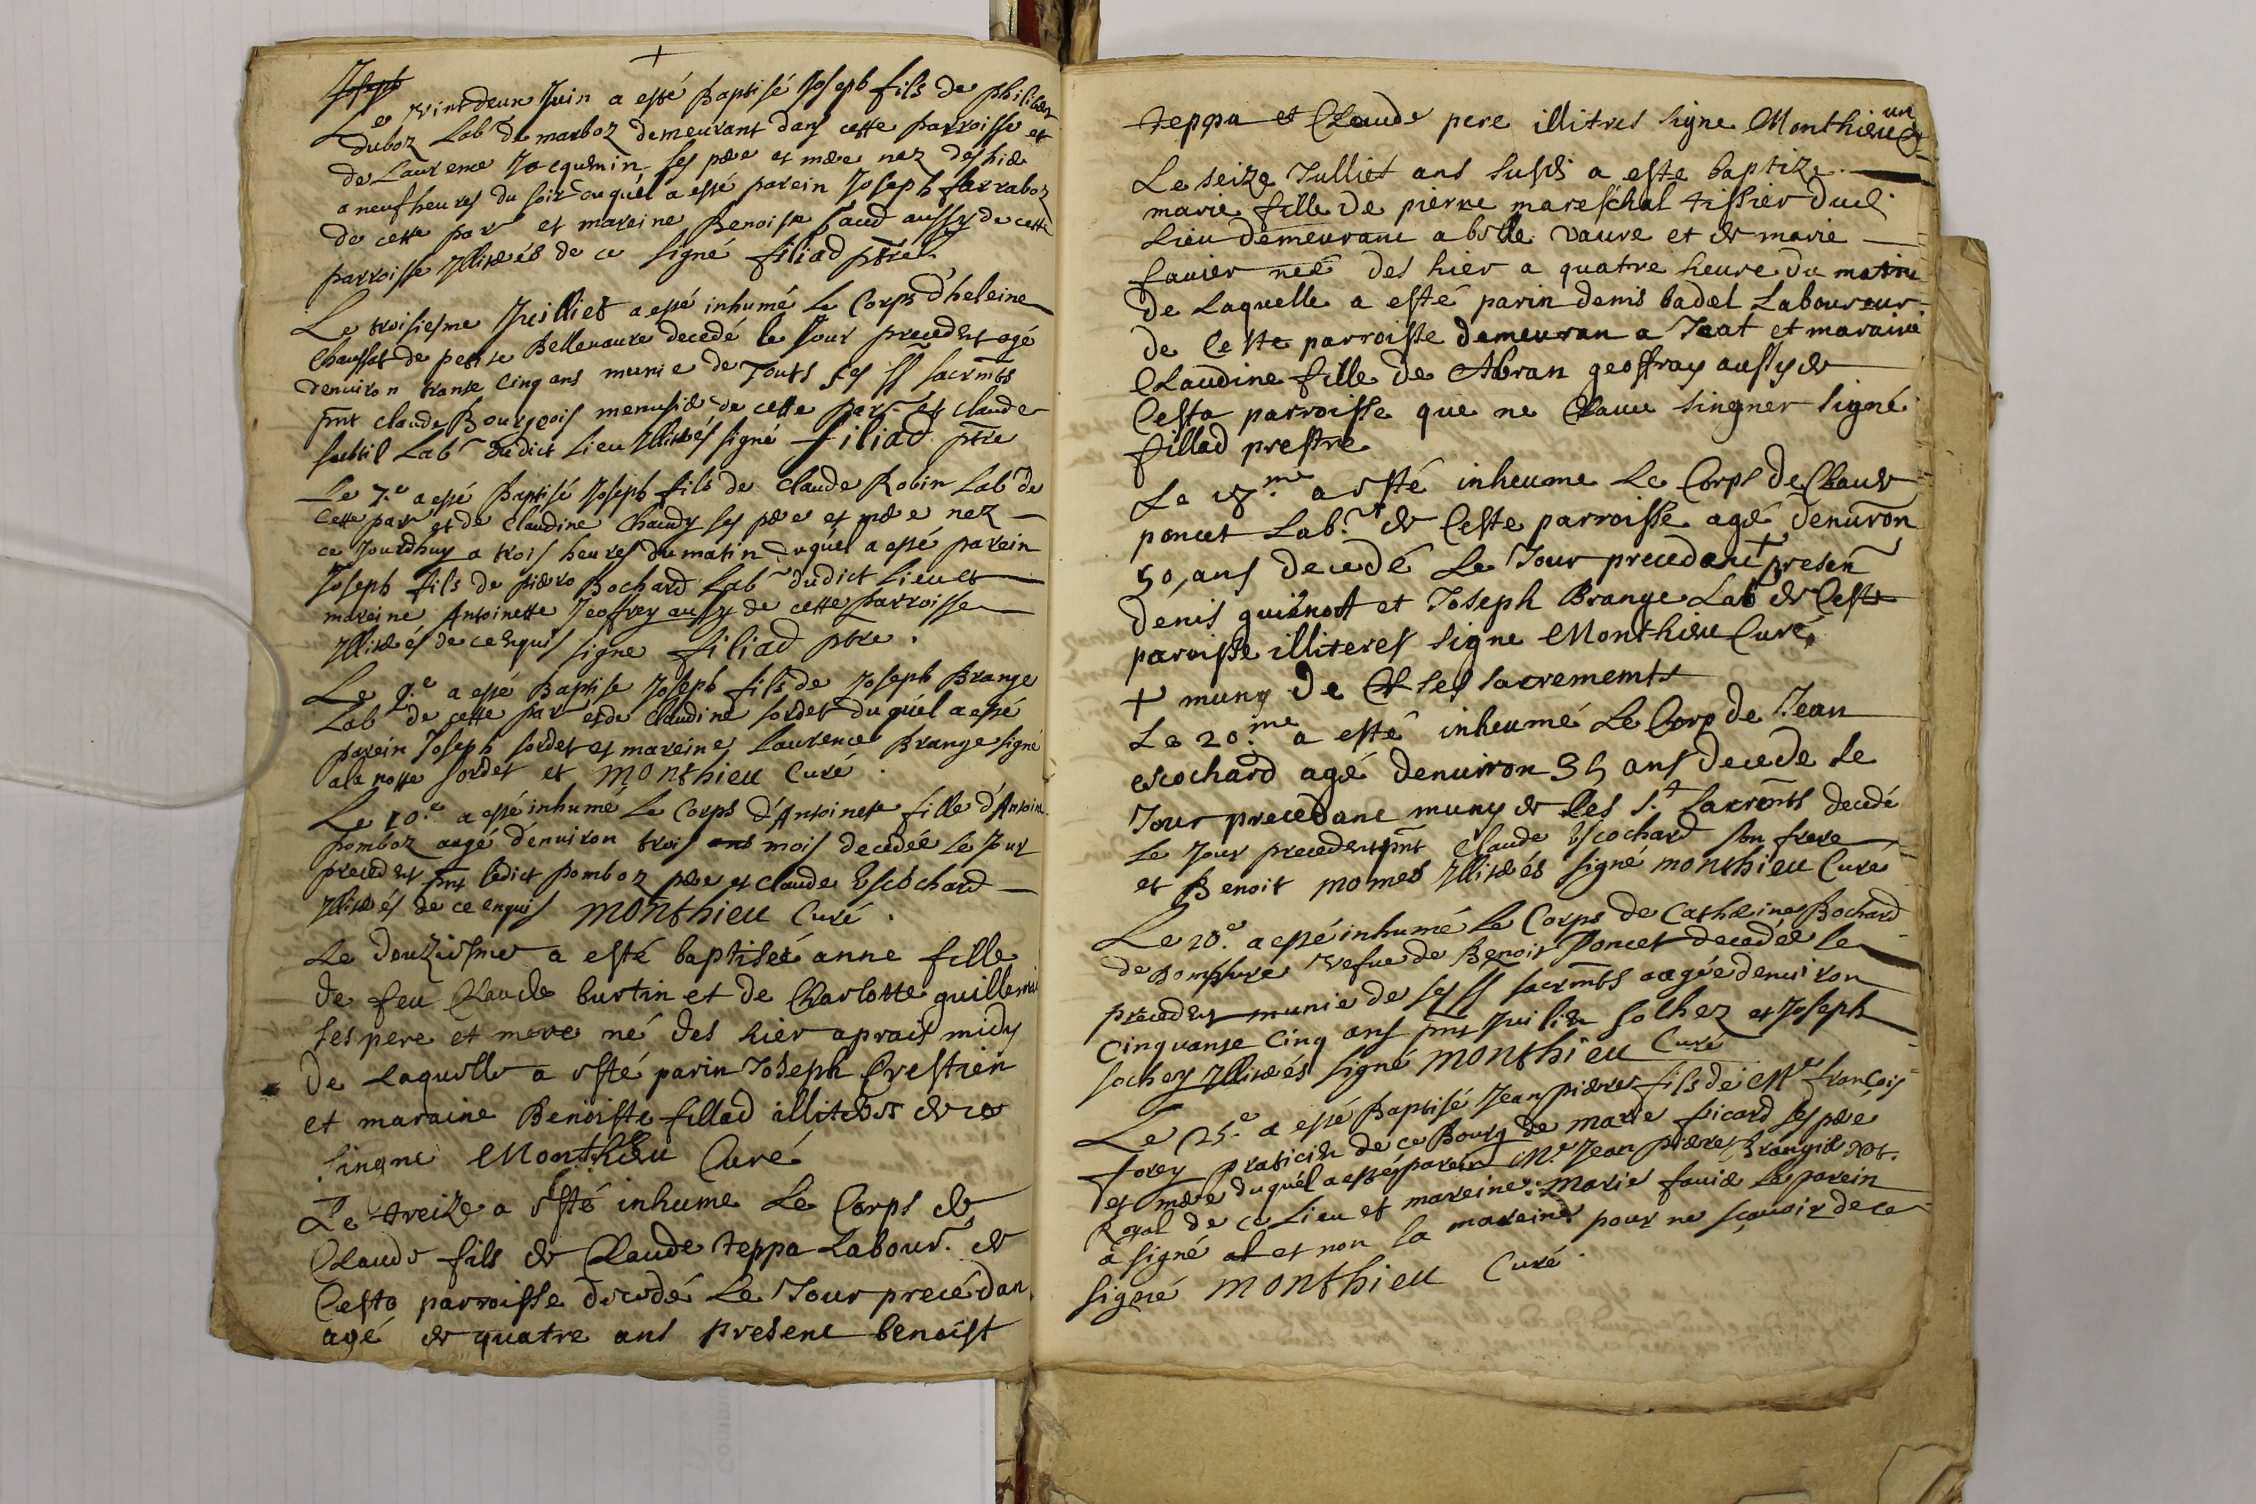 +
Joseph
Le vint deux Juin a esté Baptisé Joseph fils de philibert
duboz Lab.r de marboz demeurant dans cette parroisse et
de Laurence Jacquemin ses pere et mere nez des hier
a neuf heures du soir duquel a esté parein Joseph farraboz
de cette par et mareine Benoiste Gaud aussy de cette
parroisse Illiterés de ce signé filiad ptre
Le troisiesme Juilliet a esté inhumé Le Corps d'heleine
Chaussat de petite Bellevaure decedé le Jour precedent agé
denuiron trante Cinq ans munie de Touts ses SS sacrmts
pnt claude Bourjois menusier de cette par. et claude
subtil Lab.r dudict Lieu Illiterés signé filiad ptre
Le 7.e a esté Baptisé Joseph fils de Claude Robin Lab de
Cette par et de Claudine Chaudy ses pere et mere nez
ce Jourdhuy a trois heures du matin duquel a esté parein
Joseph fils de piero Bochard Lab dudict Lieu et
mareine Antoinette Jeoffrey aussy de cette parroisse
Illiterés de ce Enquis signe filiad ptre.
Le 9.e a esté Baptise Joseph fils de Joseph Brange
Lab de cette par et de Claudine sordet duquel a esté
parein Joseph sordet et mareine Laurence Brange signé
a la notte sordet et Monthieu Curé.
Le 10.e a esté inhumé Le Corps d'Antoinete fille d'Antoin
pomboz aagé denuiron trois ans mois decedée Le Jour
precedent pnt ledict pomboz pere et Claude Escochard
Illiterés de ce enquis Monthieu Curé.
Le douziesme a esté baptiseé anne fille
de feu Claude burtin et de Charlotte guillemin
ses pere et mere né des hier aprais midy
de Laquelle a esté parin Joseph Crestien
et maraine Benoiste fillad illiteres de ce
singne Monthieu Curé
Le treize a esté inhume Le Corps de
Claude fils de Claude teppa Labour.r de
Ceste parroisse decedé Le Jour precédan
agé de quatre ans present benoist
teppa et Claude pere illitres signe Monthieu Cur
Le seize Julliet ans susdi a este baptize
marie fille de pierre mareschal tissier dud.
Lieu demeurant a belle vaure et de marie
fauier neé des hier a quatre heure du matin
de Laquelle a esté parin denis badel Laboureur
de Ceste parroisse demeuran a Jeat et maraine
Claudine fille de Abran geoffray aussy de
Ceste parroisse que ne singner signé
fillad prestre
Le 18.me a esté inheume Le Corps de Claude
poncet Lab.r de Ceste parroisse agé denuiron
50 ans decedé Le Jour precedant + presen
denis guienot et Joseph Brange Lab de Ceste
paroisse illiteres signe Monthieu Curé.
+ muny de ses sacrements
Le 20.me a esté inheumé Le Corp de Jean
escochard agé denuiron 35 ans decede le
Jour precedanc muny de Les S.t sacremts decedé
Le Jour precedent pnt Claude Escochard son frere
et Benoit momes Illiterés signé Monthieu Curé
Le 20.e a esté inhumé Le Corps de Catherine Bochard
de Domsure vefue de Benoit Poncet decedée le
precedent munie de ses SS sacrmts aagée denuiron
Cinquante Cinq ans pnt Juilien sochez et Joseph
sochey Illiterés signé Monthieu Curé
Le 25.e a esté Baptisé Jean piere fils de M.e francois
forey praticien de ce Bourg de marie ficard ses pere
et mere duquel a esté parein M.e Jean piere Brangier Not.
Royal de ce Lieu et mareine marie fauier Le parein
a signé et non la mareine pour ne scauoir de ce
signé Monthieu Curé.